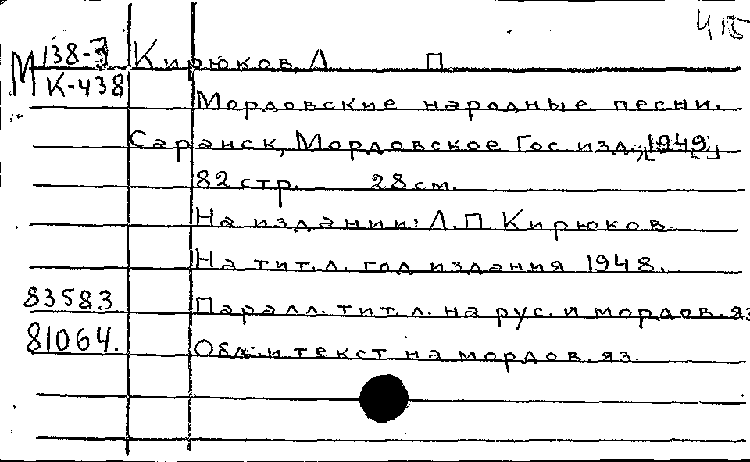 415
М 138-3 Кирюков, Л. П.
К-438
Мордовские народные песни.
Саранск, Мордовское Гос. изд., [1949]
82 стр. 28 см.
На издании: Л.П. Кирюков.
На тит. л. год издания 1948.
83583 Паралл. тит. л. на рус. и мордов. яз
81064. Обл. и текст на мордов. яз.